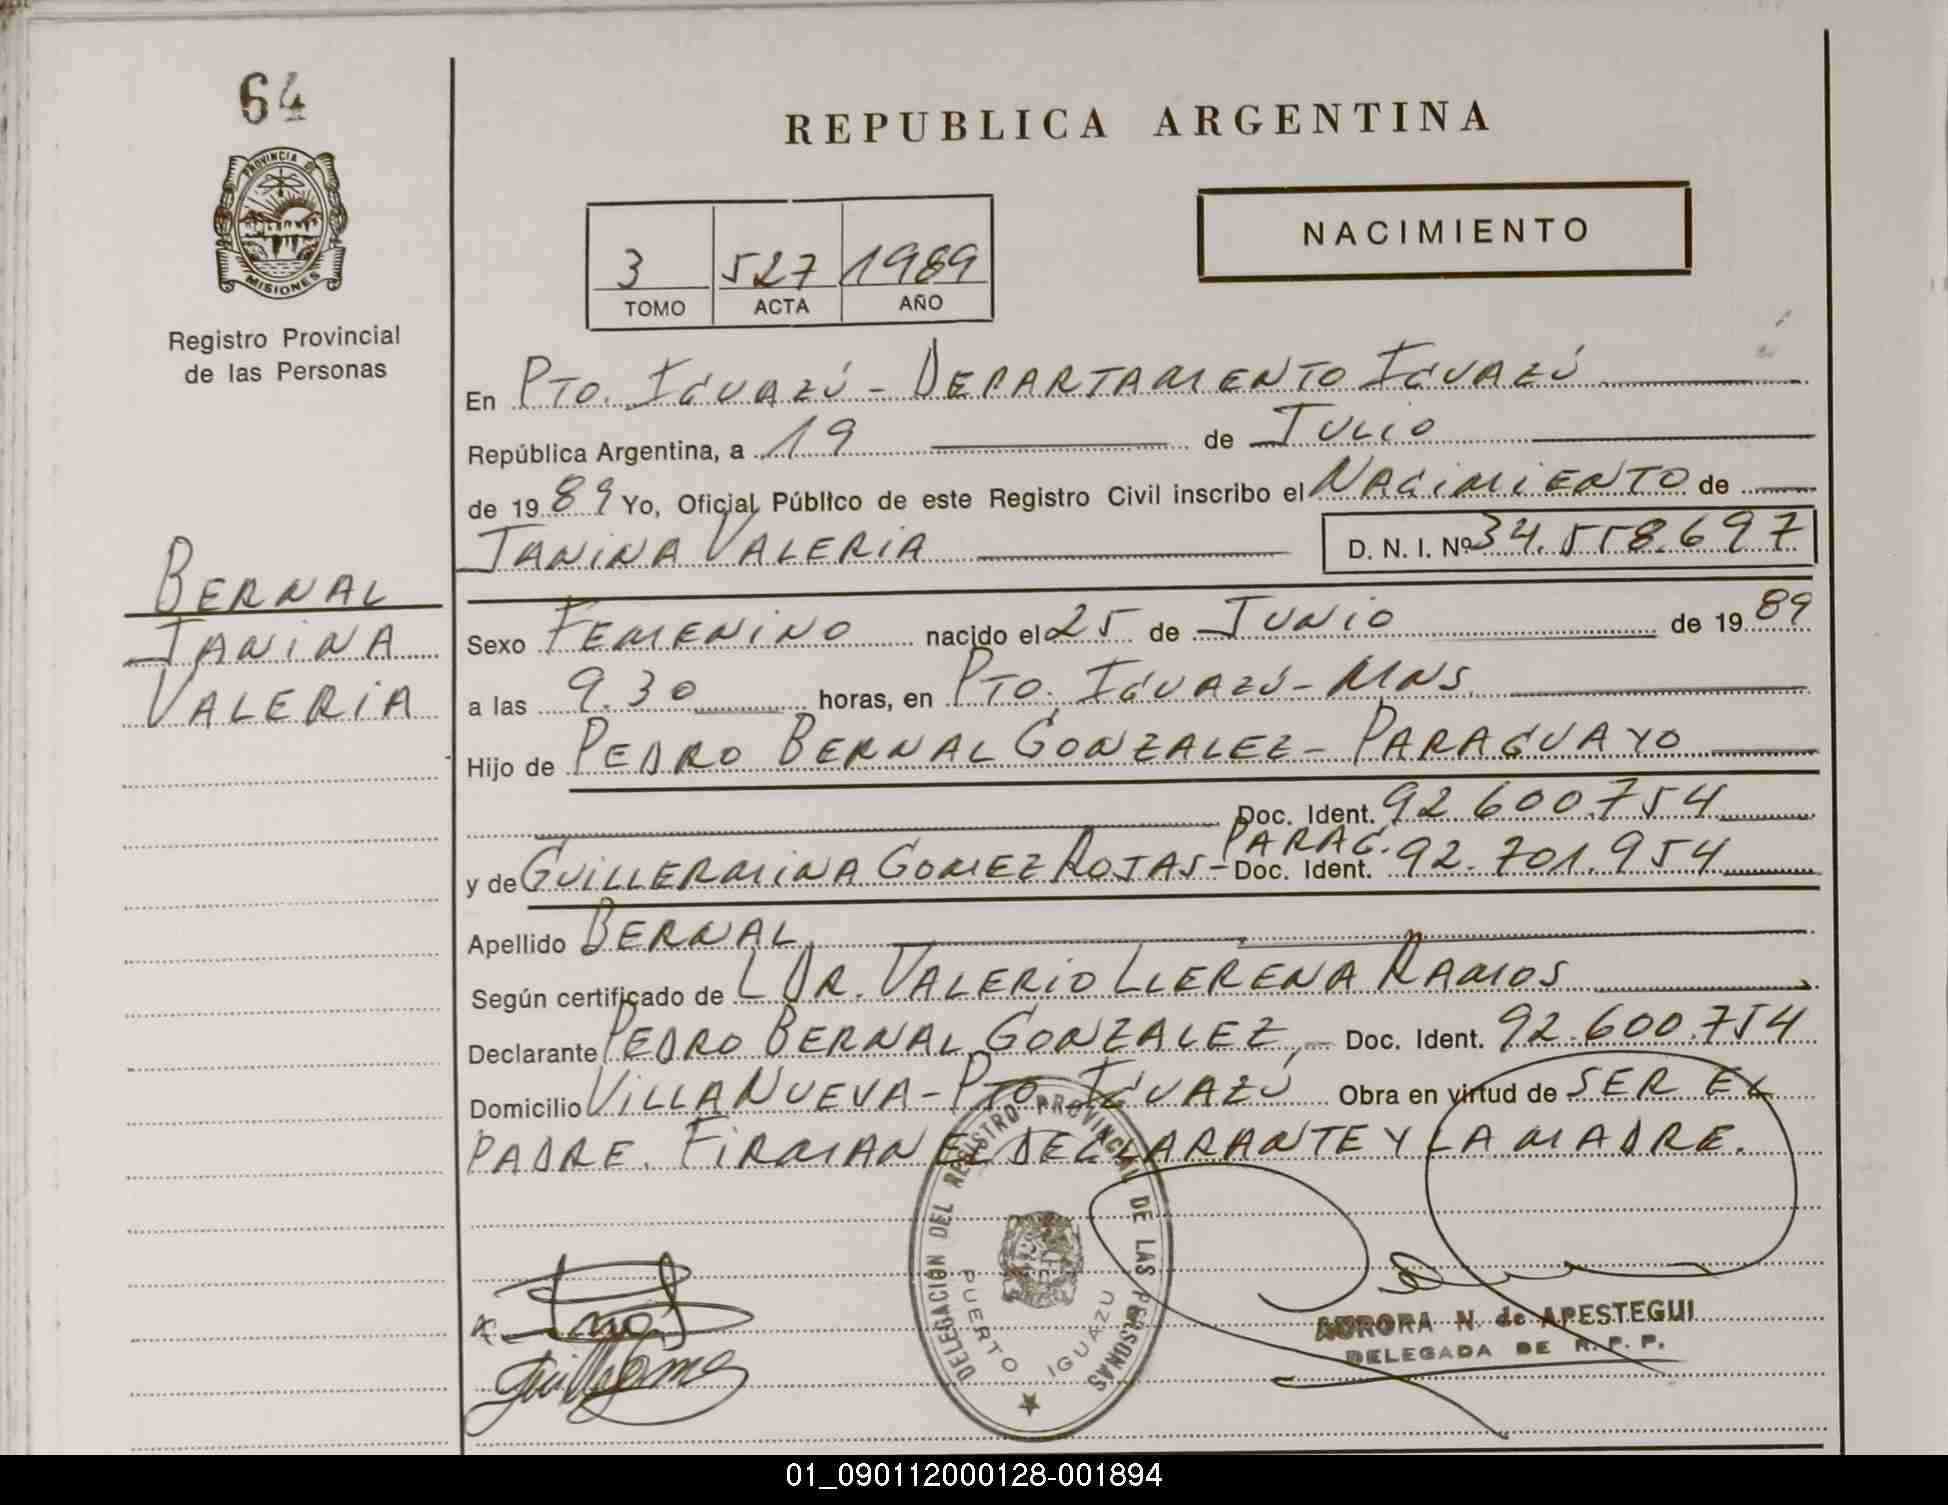 64
PROVINCIA DE
MISIONES
Registro Provincial
de las Personas
BERNAL
JANINA
VALERIA
REPUBLICA ARGENTINA
3 527 1989
TOMO ACTA AÑO
NACIMIENTO
En PTO. IGUAZÚ - DEPARTAMENTO IGUAZÚ
República Argentina, a 19 de JULIO
de 1989 Yo, Oficial Público de este Registro Civil inscribo el NACIMIENTO de
JANINA VALERIA D. N. I. Nº 34.558.697
Sexo FEMENINO nacido el 25 de JUNIO de 1989
a las 9.30 horas, en PTO. IGUAZÚ - MNS.
Hijo de PEDRO BERNAL GONZALEZ - PARAGUAYO
Doc. Ident. 92.600.754
y de GUILLERMINA GOMEZ ROJAS - PARAG. Doc. Ident. 92.701.954
Apellido BERNAL
Según certificado de L DR. VALERIO LLERENA RAMOS
Declarante PEDRO BERNAL GONZALEZ, - Doc. Ident. 92.600.754
Domicilio VILLA NUEVA - PTO. IGUAZÚ Obra en virtud de SER EL
PADRE. FIRMAN EL DECLARANTE Y LA MADRE.
DELEGACION DEL REGISTRO PROVINCIAL DE LAS PERSONAS
PUERTO IGUAZU
AURORA N. de APESTEGUI
DELEGADA DE R. P. P.
01_090112000128-001894